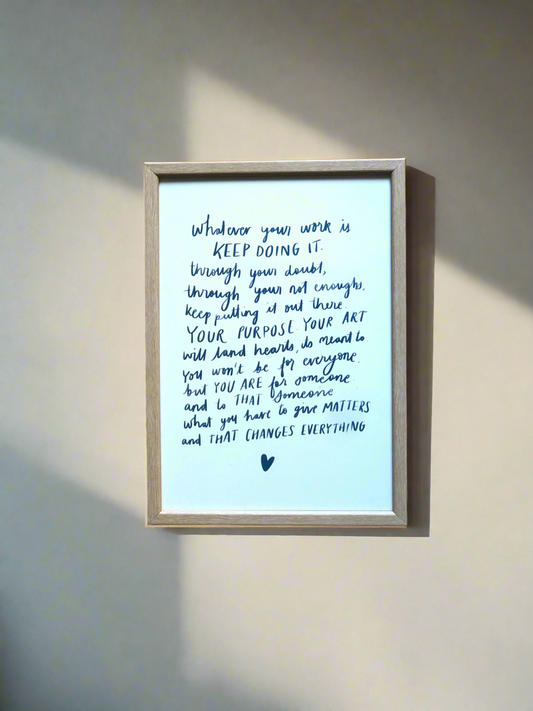 whatever your work is
KEEP DOING IT.
through your doubt,
through your not enoughs.
keep putting it out there.
YOUR PURPOSE YOUR ART
will land hearts, its meant to
you won't be for everyone.
but YOU ARE for someone
and to THAT someone
what you have to give MATTERS
and THAT CHANGES EVERYTHING